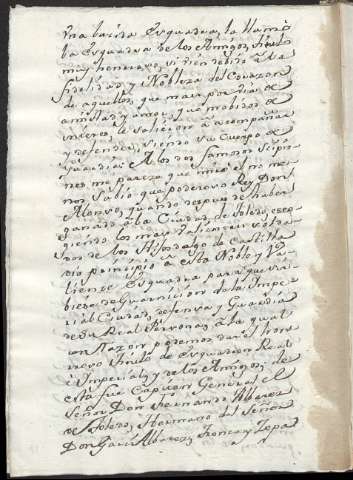 una lucida Esquadra, la llamó
la Esquadra de los Amigos, titulo
muy honoroso, si bien debido à la
fidelidad, y Nobleza del Corazon
de aquellos, que mas por via de
amistad, y amor, que mobidos de
interes, le salieron à acompañar
y defender, siendo su Cuerpo de
Guardia: A los dos famosos Scipio-
nes me parece que imitó el no me-
nos Sabio que poderoso Rey Don
Alonso, quando despues de haber
ganado à la Ciudad de Toledo, esco-
giendo los mas Valientes soldados
de los Hijosdalgo de Castilla
dio principio à esta Noble y Va-
liente Esquadra para que sir-
biese de Guarnicion de la Impe-
rial Ciudad, defensa y Guardia
de Su Real Persona, à la qual
con Razon podemos dar el honroso
Titulo de Esquadron Real
è Imperial, y de los Amigos, de
esta fue Capitan General el
Señor Don Fernando Albarez
de Toledo, Hermano del Señor
Don Garci Albarez,